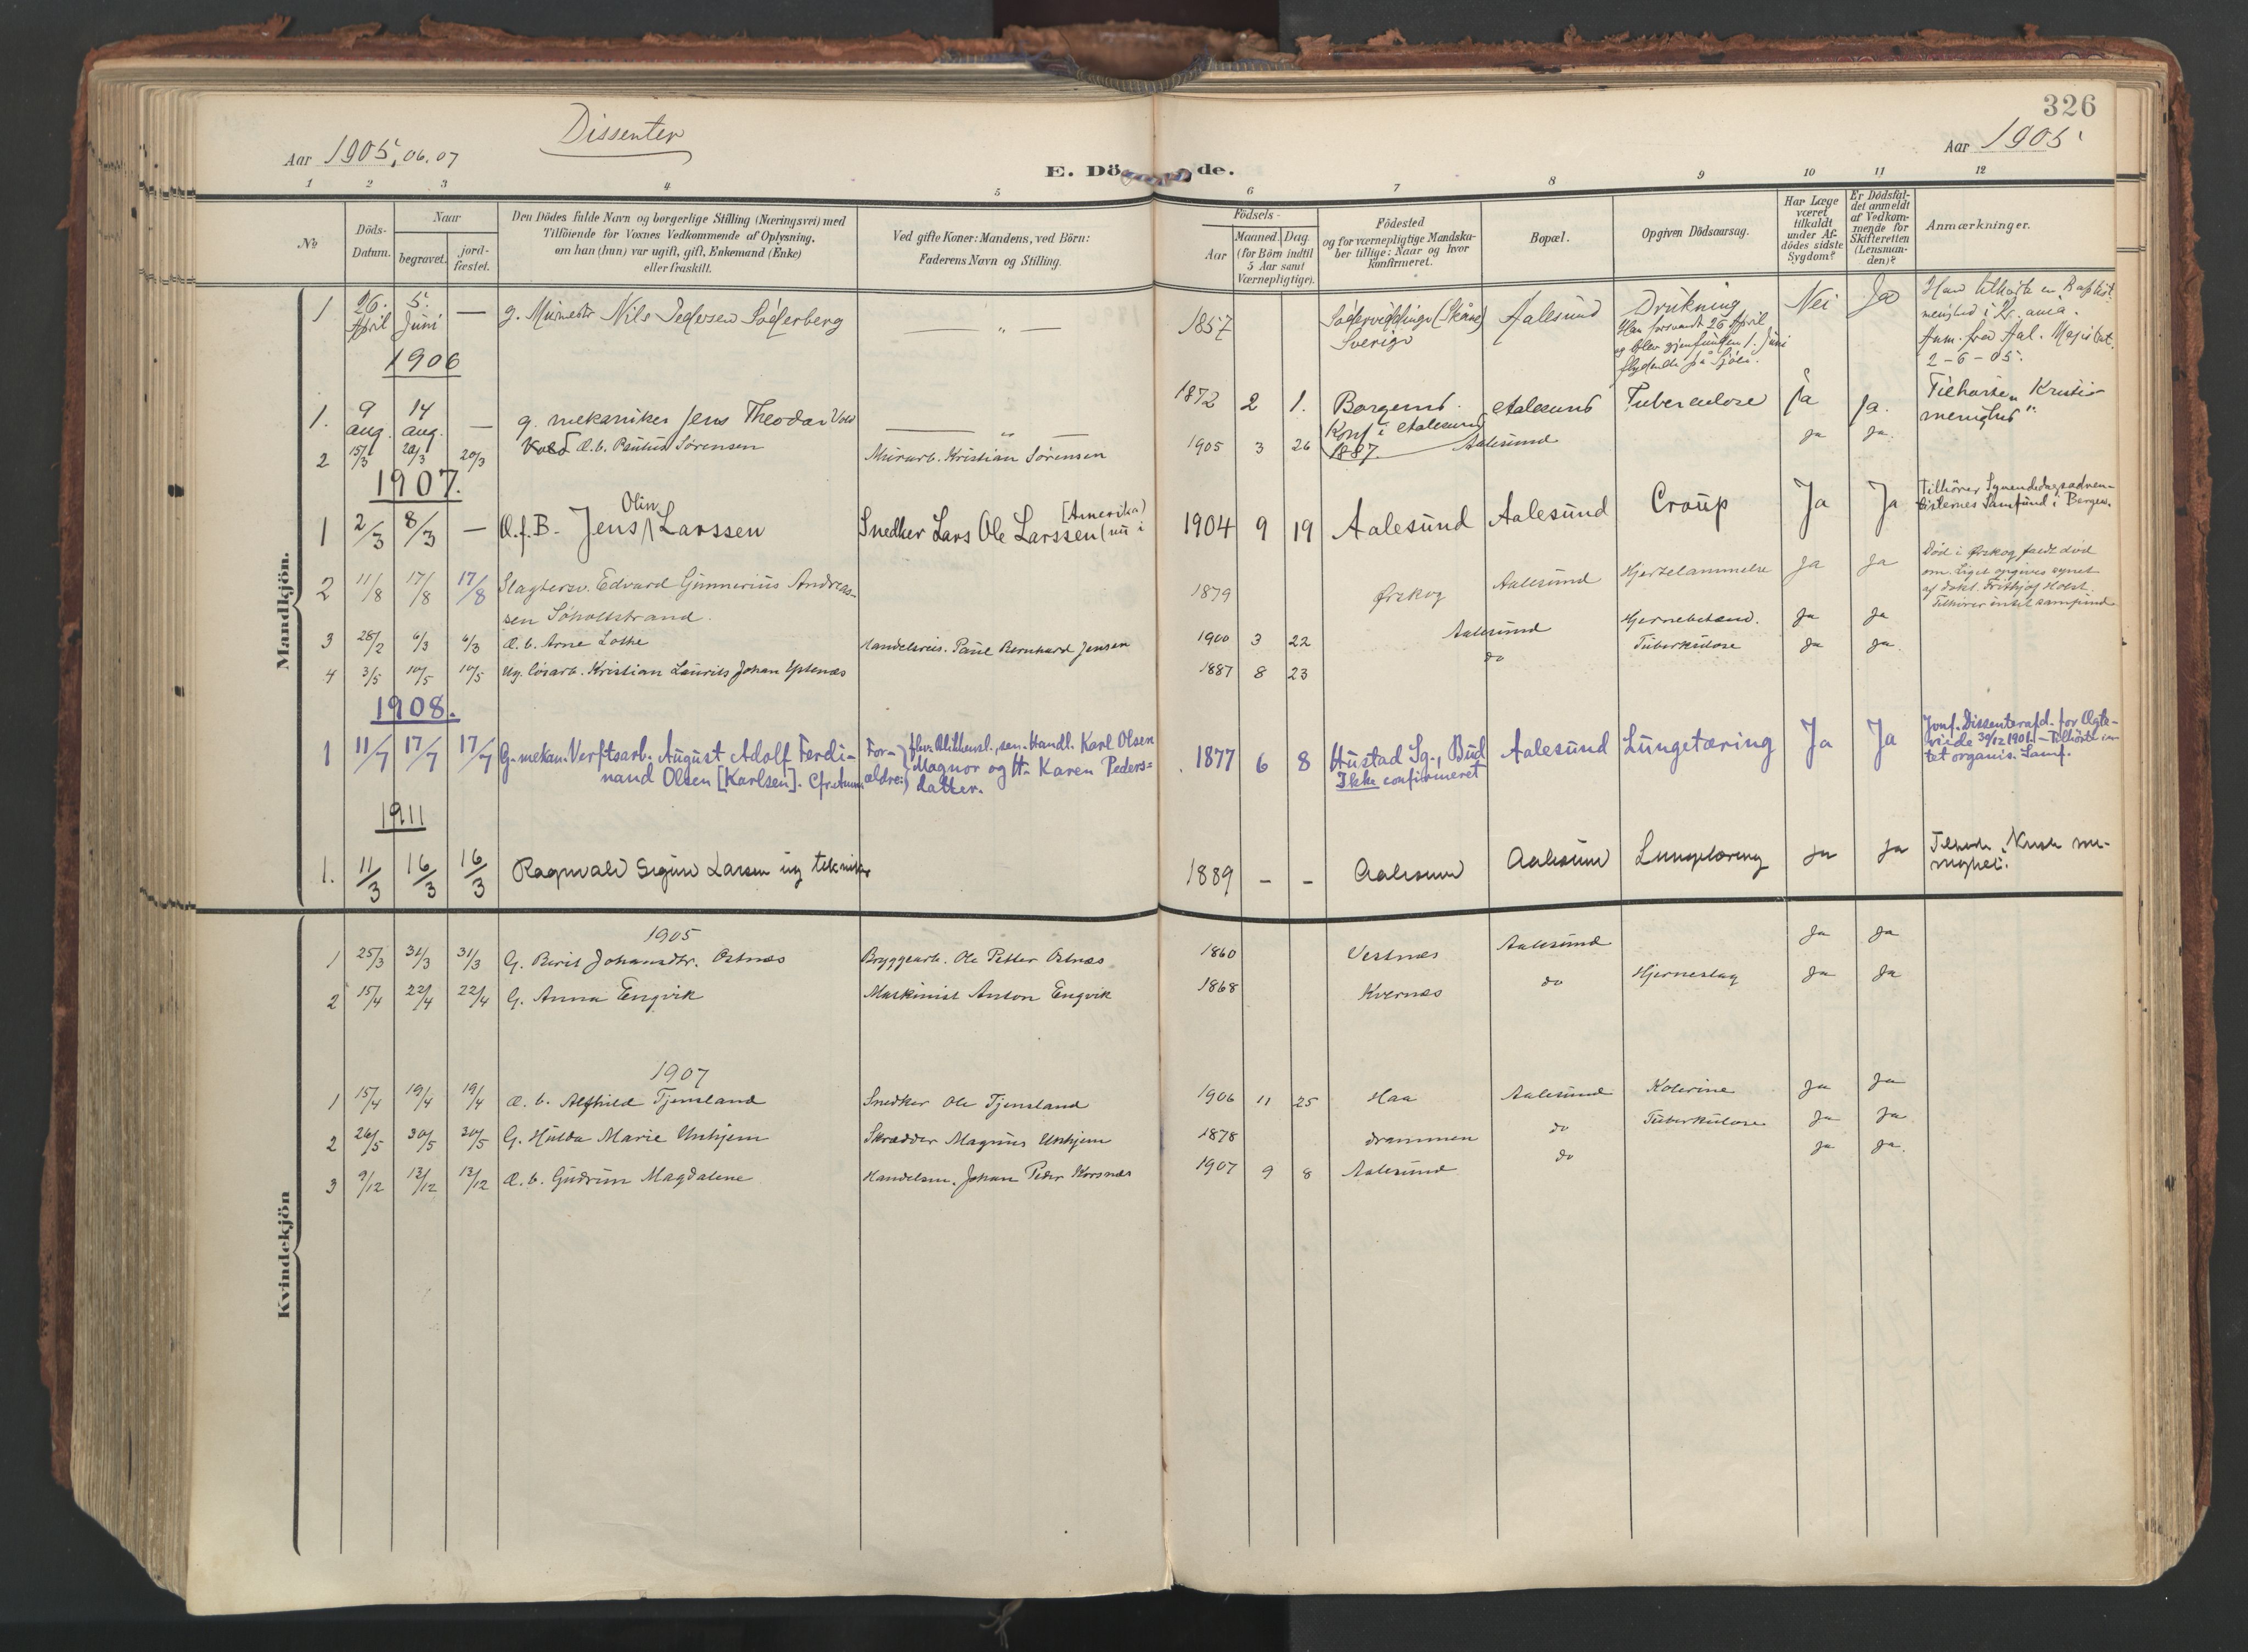 326
Dissenter
Aar 1905, 06. 07
Aar 1905
E. Dö de.
1 2 3 4 5 6 7 8 9 10 11 12
№
Döds-
Datum.
Naar
begravet.
jord-
fæstet.
Den Dödes fulde Navn og borgerlige Stilling (Næringsvei) med
Tilföiende for Voxnes Vedkommende af Oplysning,
om han (hun) var ugift, gift, Enkemand (Enke)
eller fraskilt.
Ved gifte Koner: Mandens, ved Börn:
Faderens Navn og Stilling.
Födsels-
Aar
Maaned. Dag.
(for Börn indtil
5 Aar samt
Værnepligtige).
Födested
og for værnepligtige Mandska-
ber tillige: Naar og hvor
konfirmeret.
Bopæl.
Opgiven Dödsaarsag.
Har Læge
været
tilkaldt
under Af-
dödes sidste
Sygdom?
Er Dödsfal-
det anmeldt
af Vedkom-
mende for
Skifteretten
(Lensman-
den)?
Anmærkninger.
Mandkjön.
1 26. April 5. Juni — g. Nils Pedersen Söderberg — „ — 1857 (Skåne) Sverige Aalesund Drukning Nei Ja
Han forsvandt 26 April
og blev gjenfunden 1. Juni
flydende på Sjöen.
Han tilhörte en Baptist
menighed i
Anm. fra Aal. Magistrat
2-6-05.
1906
1. 9 aug. 14 aug. — g. mekaniker Jens Theodor Vold — „ — 1872 2 1. Borgund. Aalesund Tuberculose Ja Ja.
Konf i Aalesund
1887.
menighed".
2 15/3 20/3 20/3 Æ. b. Paulus Sørensen Murarb. Kristian Sörensen 1905 3 26 Aalesund Ja Ja.
1907.
1 2/3 8/3 — Æ. f. B. Jens Olin Larssen Snedker Lars Ole Larssen (nu i [Amerika) 1904 9 19 Aalesund Aalesund Croup Ja Ja
Tilhörer Syvendedagsadven-
tisternes Samfund i Bergen.
2 11/8 17/8 17/8 Slagtersv. Edvard Gunnerius Andreas-
sen Søholtstrand. 1879 Ørskog Aalesund Hjertelammelse Ja Ja
Død i Ørskog, faldt død
om. Liget opgives synet
af dokt. Frithjof Holst.
Tilhörer intet samfund
3 28/2 6/3 6/3 Æ. b. Arne Lothe Handelsreis. Paul Bernhard Jensen 1900 3 22 Aalesund Hjernebetænd. Ja Ja
4 3/5 10/5 10/5 Ug. løsarb. Kristian Laurits Johan 1887 8 23 do Tuberkulose Ja Ja.
1908.
1 11/7 17/7 17/7 G. mekan. Verftsarb. August Adolf Ferdi-
nand Olsen [Karlsen]. Cfr. Anm.
For-
ældre:
sen. Handl. Karl Olsen
Magnor og H. Karen Peders-
datter.
1877 6 8 Hustad Sg., Bud
Ikke confirmeret
Aalesund Lungetæring Ja Ja
Jvnf. Dissenterafd. for Ægte-
viede 30/12 1901. — Tilhörte in-
tet organis. Samf.
1911
1. 11/3 16/3 16/3 Ragnvald Sigurd Larsen ug tekniker 1889 – – Aalesund Aalesund Lungetæring Ja Ja
Kvindekjön
1905
1 25/3 31/3 31/3 G. Berit Johansdtr. Ostnæs Bryggearb. Ole Petter Ostnæs 1860 Vestnæs Aalesund Ja Ja
2 15/4 22/4 22/4 G. Anna Engvik Maskinist Anton Engvik 1868 Kvernæs do Hjerneslag Ja Ja
1907
1 15/4 19/4 19/4 Æ. b. Alfhild Tjensland Snedker Ole Tjensland 1906 11 25 Haa Aalesund Kolerine Ja Ja
2 26/5 30/5 30/5 G. Hulda Marie Unhjem Skrædder Magnus Unhjem 1878 Drammen do Tuberkulose Ja Ja
3 9/12 13/12 13/12 Æ. b. Gudrun Magdalene Handelsm. Johan Peder Korsnæs 1907 9 8 Aalesund do Ja Ja.